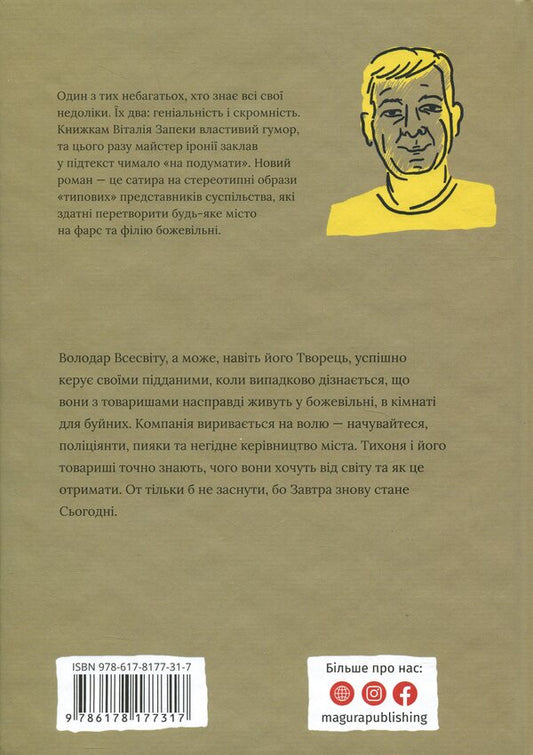 Один з тих небагатьох, хто знає всі свої
недоліки. Їх два: геніальність і скромність.
Книжкам Віталія Запеки властивий гумор,
та цього разу майстер іронії заклав
у підтекст чимало «на подумати». Новий
роман — це сатира на стереотипні образи
«типових» представників суспільства, які
здатні перетворити будь-яке місто
на фарс та філію божевільні.
Володар Всесвіту, а може, навіть його Творець, успішно
керує своїми підданими, коли випадково дізнається, що
вони з товаришами насправді живуть у божевільні, в кімнаті
для буйних. Компанія виривається на волю — начувайтеся,
поліціянти, пияки та негідне керівництво міста. Тихоня і його
товариші точно знають, чого вони хочуть від світу та як це
отримати. От тільки б не заснути, бо Завтра знову стане
Сьогодні.
ISBN 978-617-8177-31-7
9 786178 177317
Більше про нас:
magurapublishing